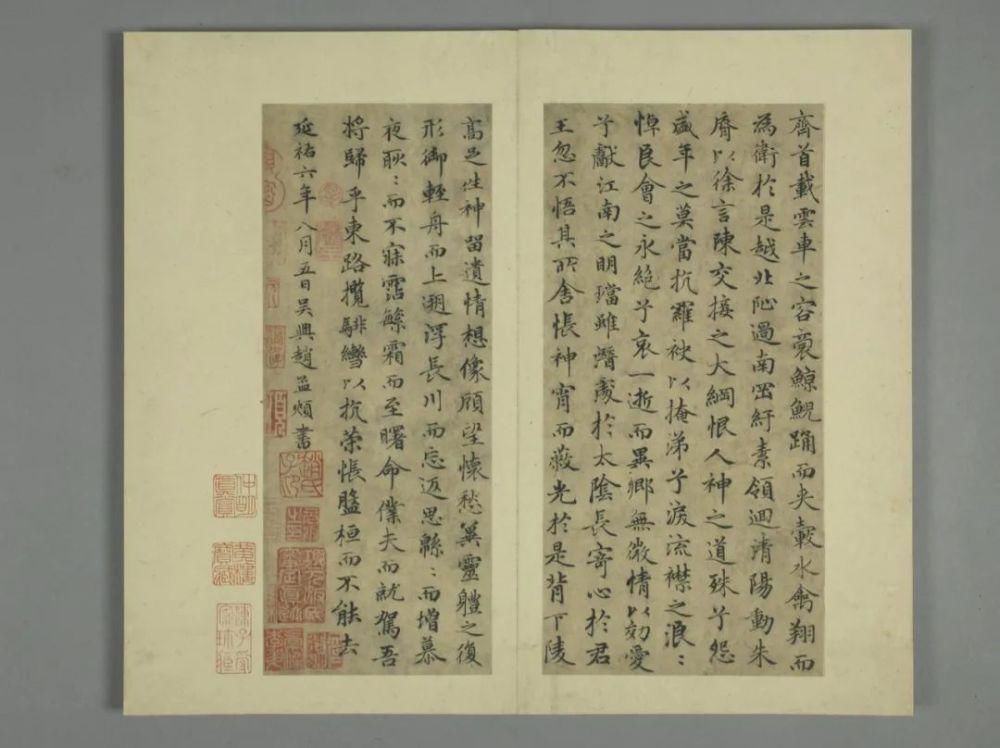 齊首載雲車之容裔鯨鯢踊而夾轂水禽翔而
為衛於是越北沚過南岡紆素領迴清陽動朱
脣以徐言陳交接之大綱恨人神之道殊兮怨
盛年之莫當抗羅袂以掩涕兮淚流襟之浪〻
悼良會之永絕兮哀一逝而異鄉無微情以效愛
兮獻江南之明璫雖潛處於太陰長寄心於君
王忽不悟其所舍悵神宵而蔽光於是背下陵
高足往神留遺情想像顧望懷愁冀靈體之復
形御輕舟而上遡浮長川而忘返思緜〻而增慕
夜耿〻而不寐霑繁霜而至曙命僕夫而就駕吾
將歸乎東路攬騑轡以抗策悵盤桓而不能去
延祐六年八月五日吳興趙孟頫書
趙氏子昂